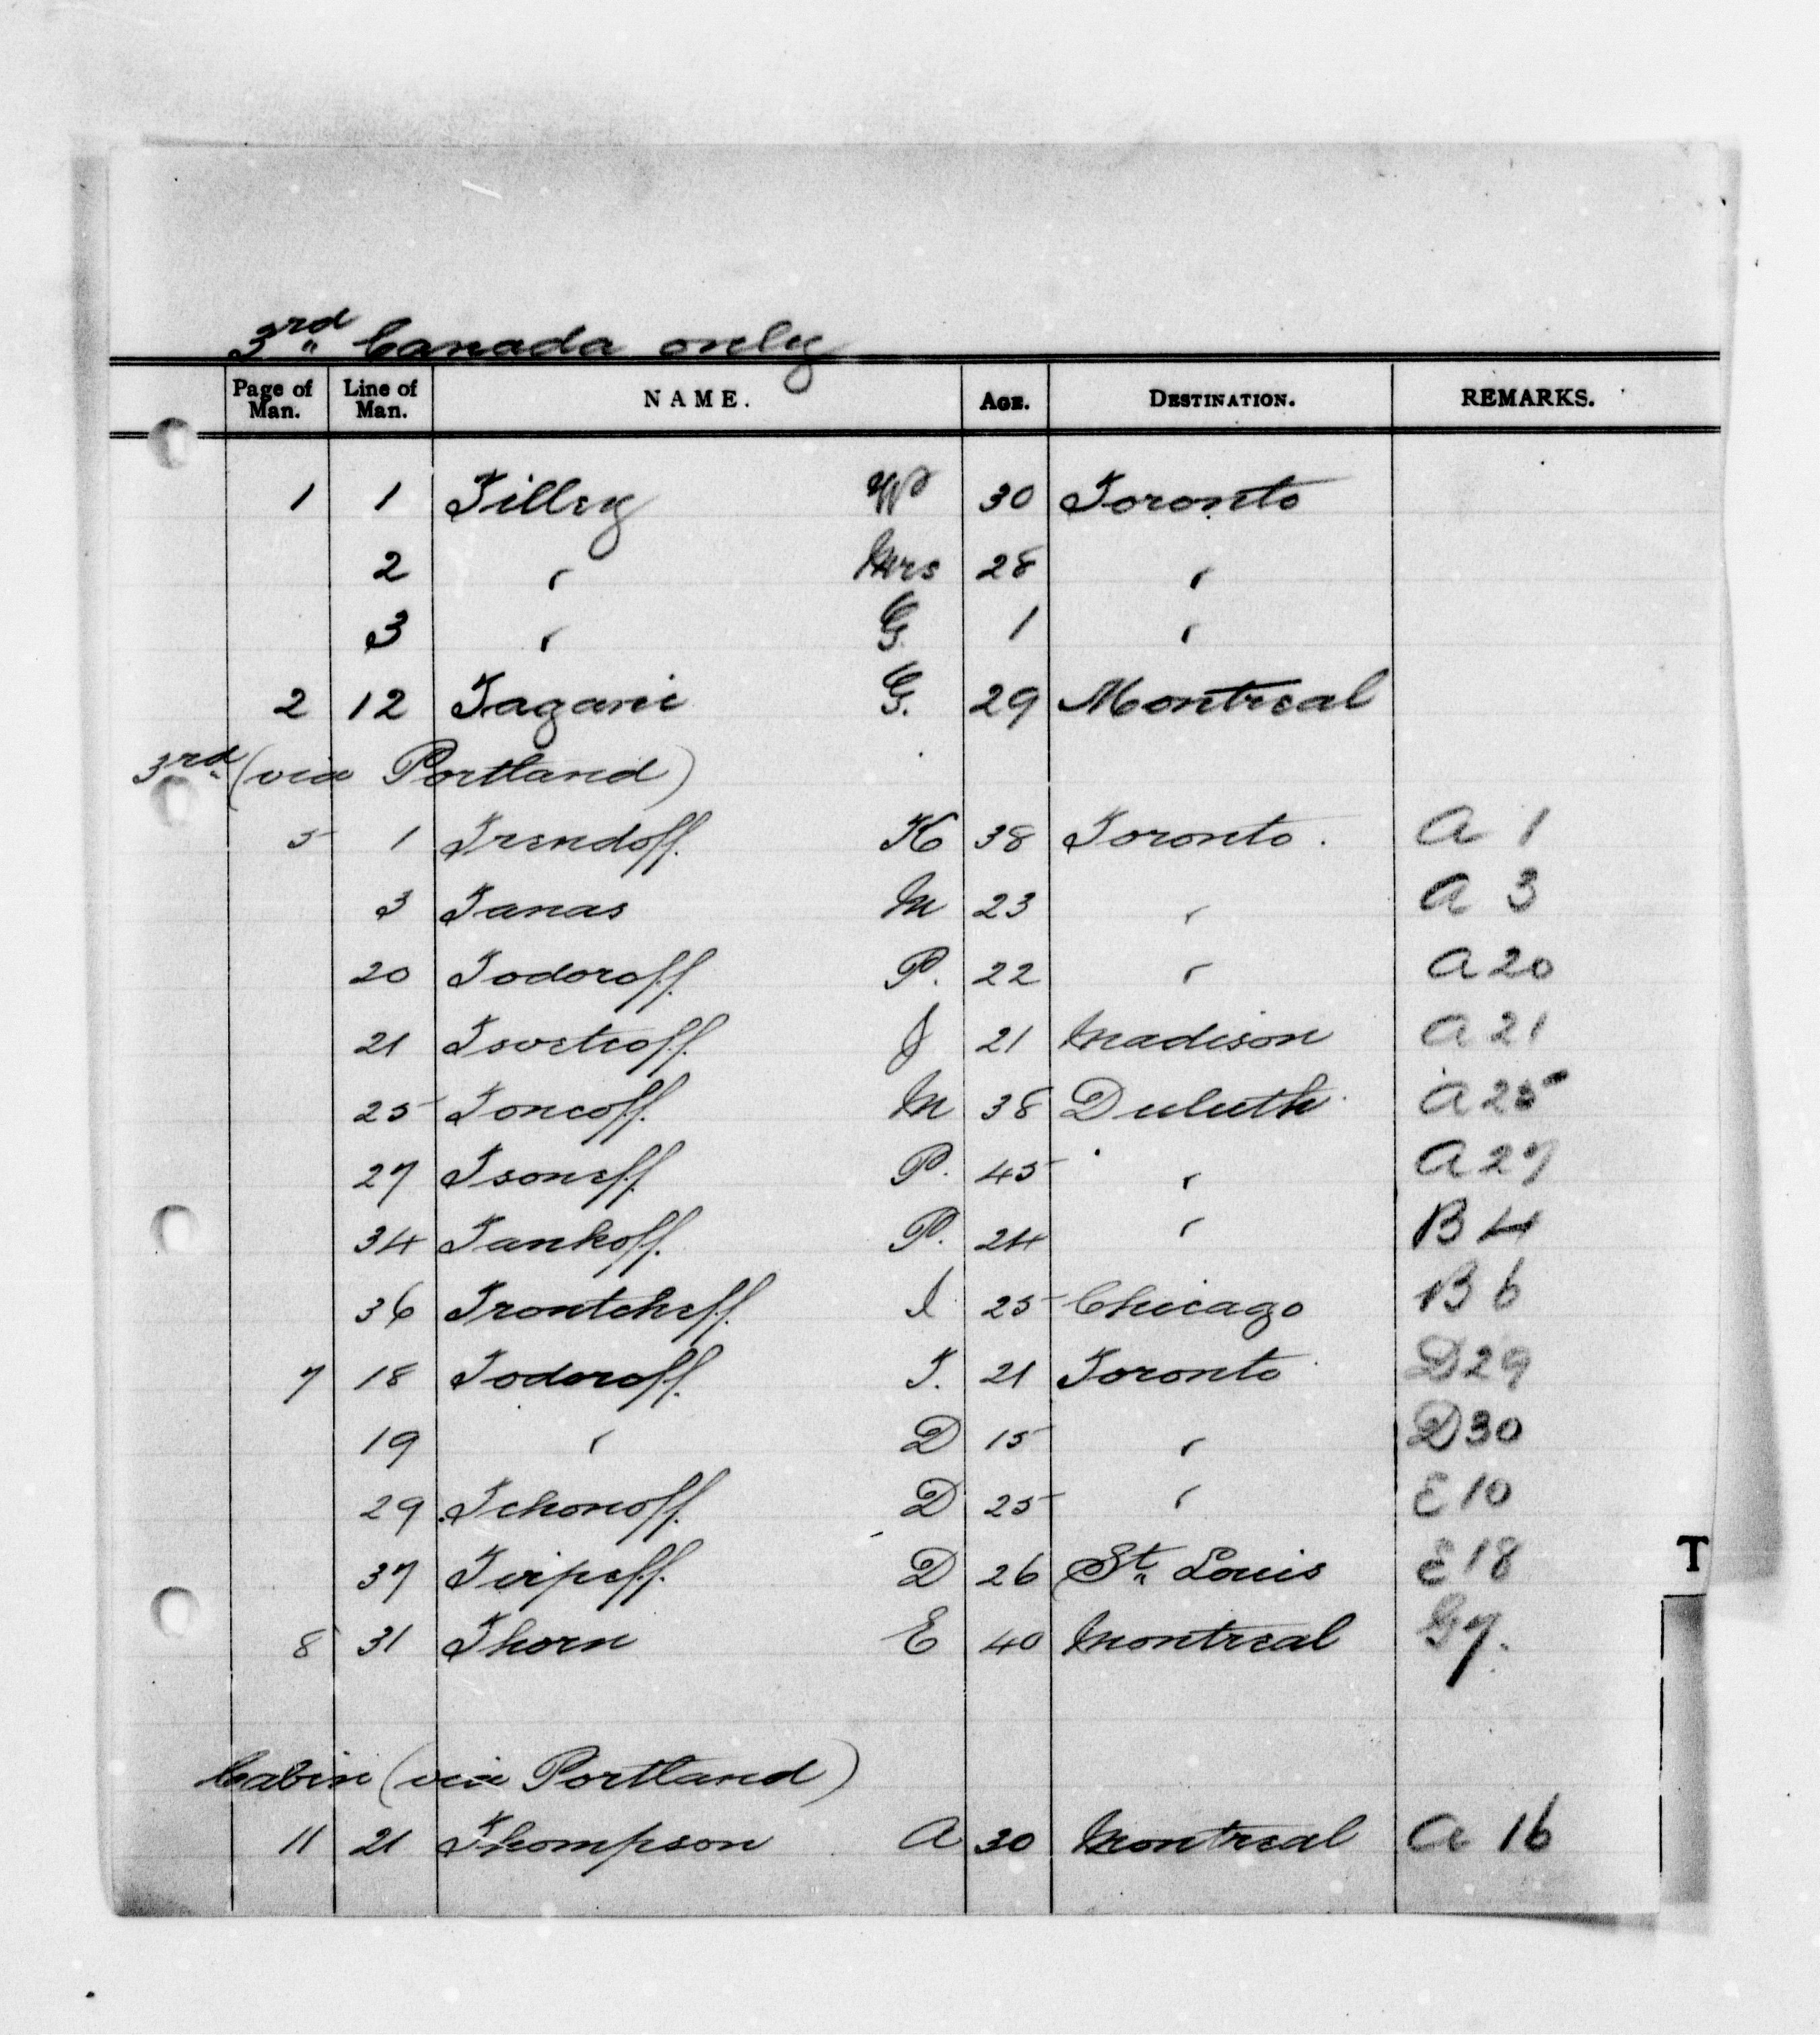 3rd Canada only
Page of Man. Line of Man. NAME. AGE. DESTINATION. REMARKS.
1 1 Tilley W 30 Toronto
2 " Mrs 28 "
3 " G. 1 "
2 12 Tagarie G. 29 Montreal
3rd (via Portland)
5 1 Trendoff. K 38 Toronto. A 1
3 Tanas M 23 " A 3
20 Todoroff. P. 22 " A 20
21 Tsvetcoff. J 21 Madison A 21
25 Toncoff. M 38 Duluth A 25
27 Tsoneff. P. 45 " A 27
34 Tankoff. P. 24 " B 4
36 Trontcheff. I 25 Chicago B 6
7 18 Todoroff. T. 21 Toronto D 29
19 " D 15 " D 30
29 Tchonoff. D 25 " E 10
37 Tirpeff. D 26 St. Louis E 18
T
8 31 Thorn E 40 Montreal G 7.
Cabin (via Portland)
11 21 Thompson A 30 Montreal A 16